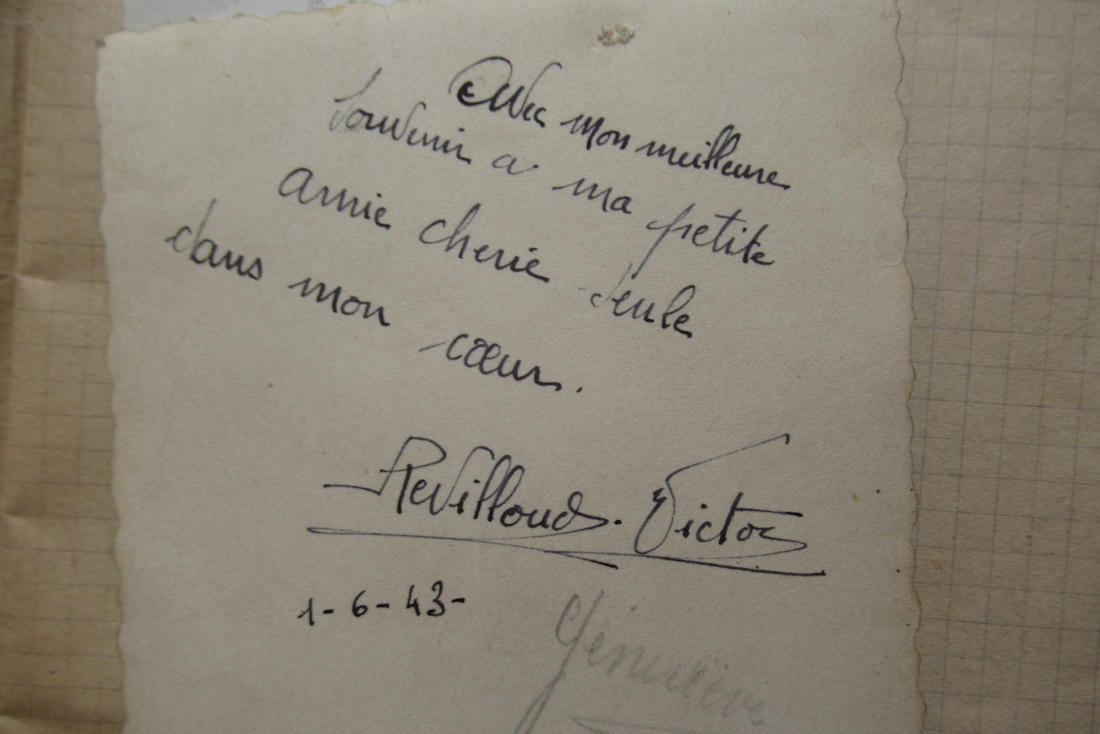 Avec mon meilleure
souvenir a ma petite
amie cherie seule
dans mon cœur.
Revilloud. Victor
1-6-43-
Geneviève